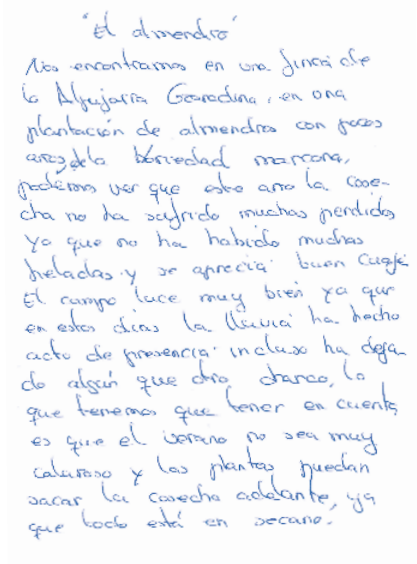 "El almendro"
Nos encontramos en una finca de
la Alpujarra Granadina, en una
plantación de almendros con pocos
años de la bariedad marcona,
podemos ver que este año la cose-
cha no ha sufrido muchas perdidas
ya que no ha habido muchas
heladas y se aprecia buen cuaje
El campo luce muy bien ya que
en estos dias la lluvia ha hecho
acto de presencia incluso ha deja-
do algún que otro charco, lo
que tenemos que tener en cuenta
es que el verano no sea muy
caluroso y las plantas puedan
sacar la cosecha adelante, ya
que todo está en secano.